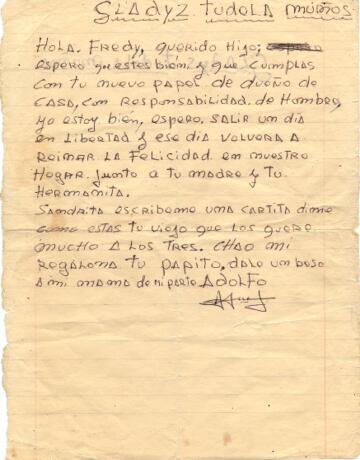 GLADYZ TUDELA MUÑOS
HOLA. FREDY, QUERIDO HIJO;
ESPERO que estes bien y que cumplas
con tu nuevo papel de dueño de
CASA, con RESPONSABILIDAD de Hombre,
yo estoy bien, espero. SALIR un dia
en LIBERTAD y ese dia VOLVERA A
REINAR LA FELICIDAD en nuestro
HOGAR. Junto a tu madre y tu
HERMANITA.
SANDRITA escribeme una cartita dime
como estas tu viejo que los quere
mucho A LOS TRES. CHAO mi
REGALONA tu PAPITO, dale un beso
A mi mama de mi parte ADOLFO